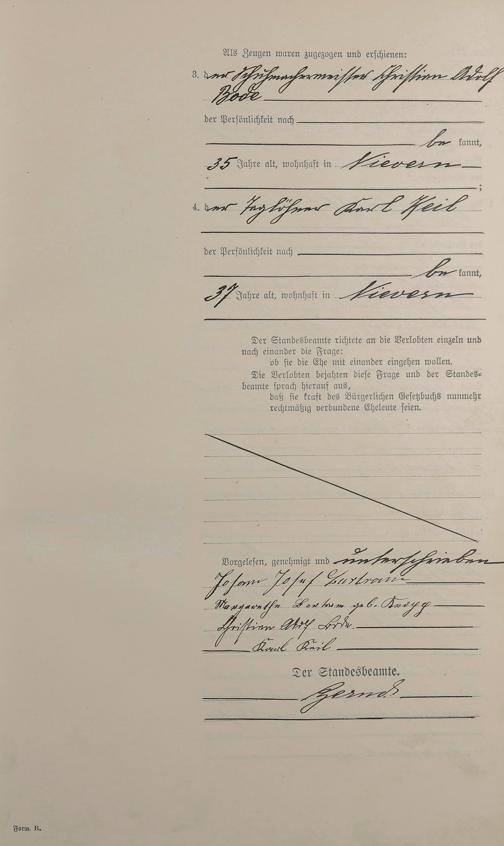 Als Zeugen waren zugezogen und erschienen:
3. der Schuhmachermeister Christian Adolf
Bode
der Persönlichkeit nach
be kannt,
35 Jahre alt, wohnhaft in Nievern
;
4. der Taglöhner Karl Keil
der Persönlichkeit nach
be kannt,
37 Jahre alt, wohnhaft in Nievern
Der Standesbeamte richtete an die Verlobten einzeln und
nach einander die Frage:
ob sie die Ehe mit einander eingehen wollen.
Die Verlobten bejahten diese Frage und der Standes-
beamte sprach hierauf aus,
daß sie kraft des Bürgerlichen Gesetzbuchs nunmehr
rechtmäßig verbundene Eheleute seien.
Vorgelesen, genehmigt und unterschrieben
Johann Josef
Margarethe geb.
Christian Adolf Bode.
Karl Keil
Der Standesbeamte.
Form. B.